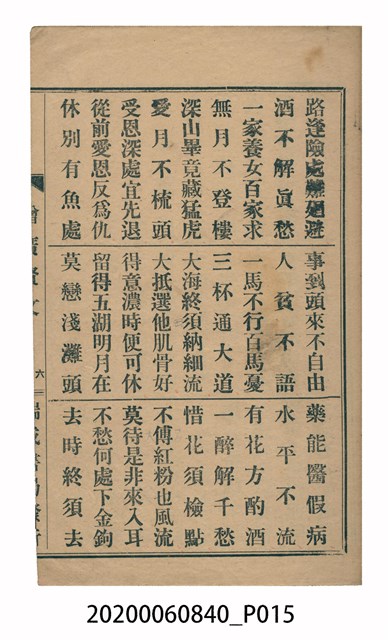 路逢險處難廻避 事到頭來不自由 藥能醫假病
酒不解眞愁 人貧不語 水平不流
一家養女百家求 一馬不行百馬憂 有花方酌酒
無月不登樓 三杯通大道 一醉解千愁
深山畢竟藏猛虎 大海終須納細流 惜花須檢點
愛月不梳頭 大抵選他肌骨好 不傅紅粉也風流
受恩深處宜先退 得意濃時便可休 莫待是非來入耳
從前愛恩反爲仇 留得五湖明月在 不愁何處下金鉤
休別有魚處 莫戀淺灘頭 去時終須去
增廣賢文 六 瑞成書局發行
20200060840_P015